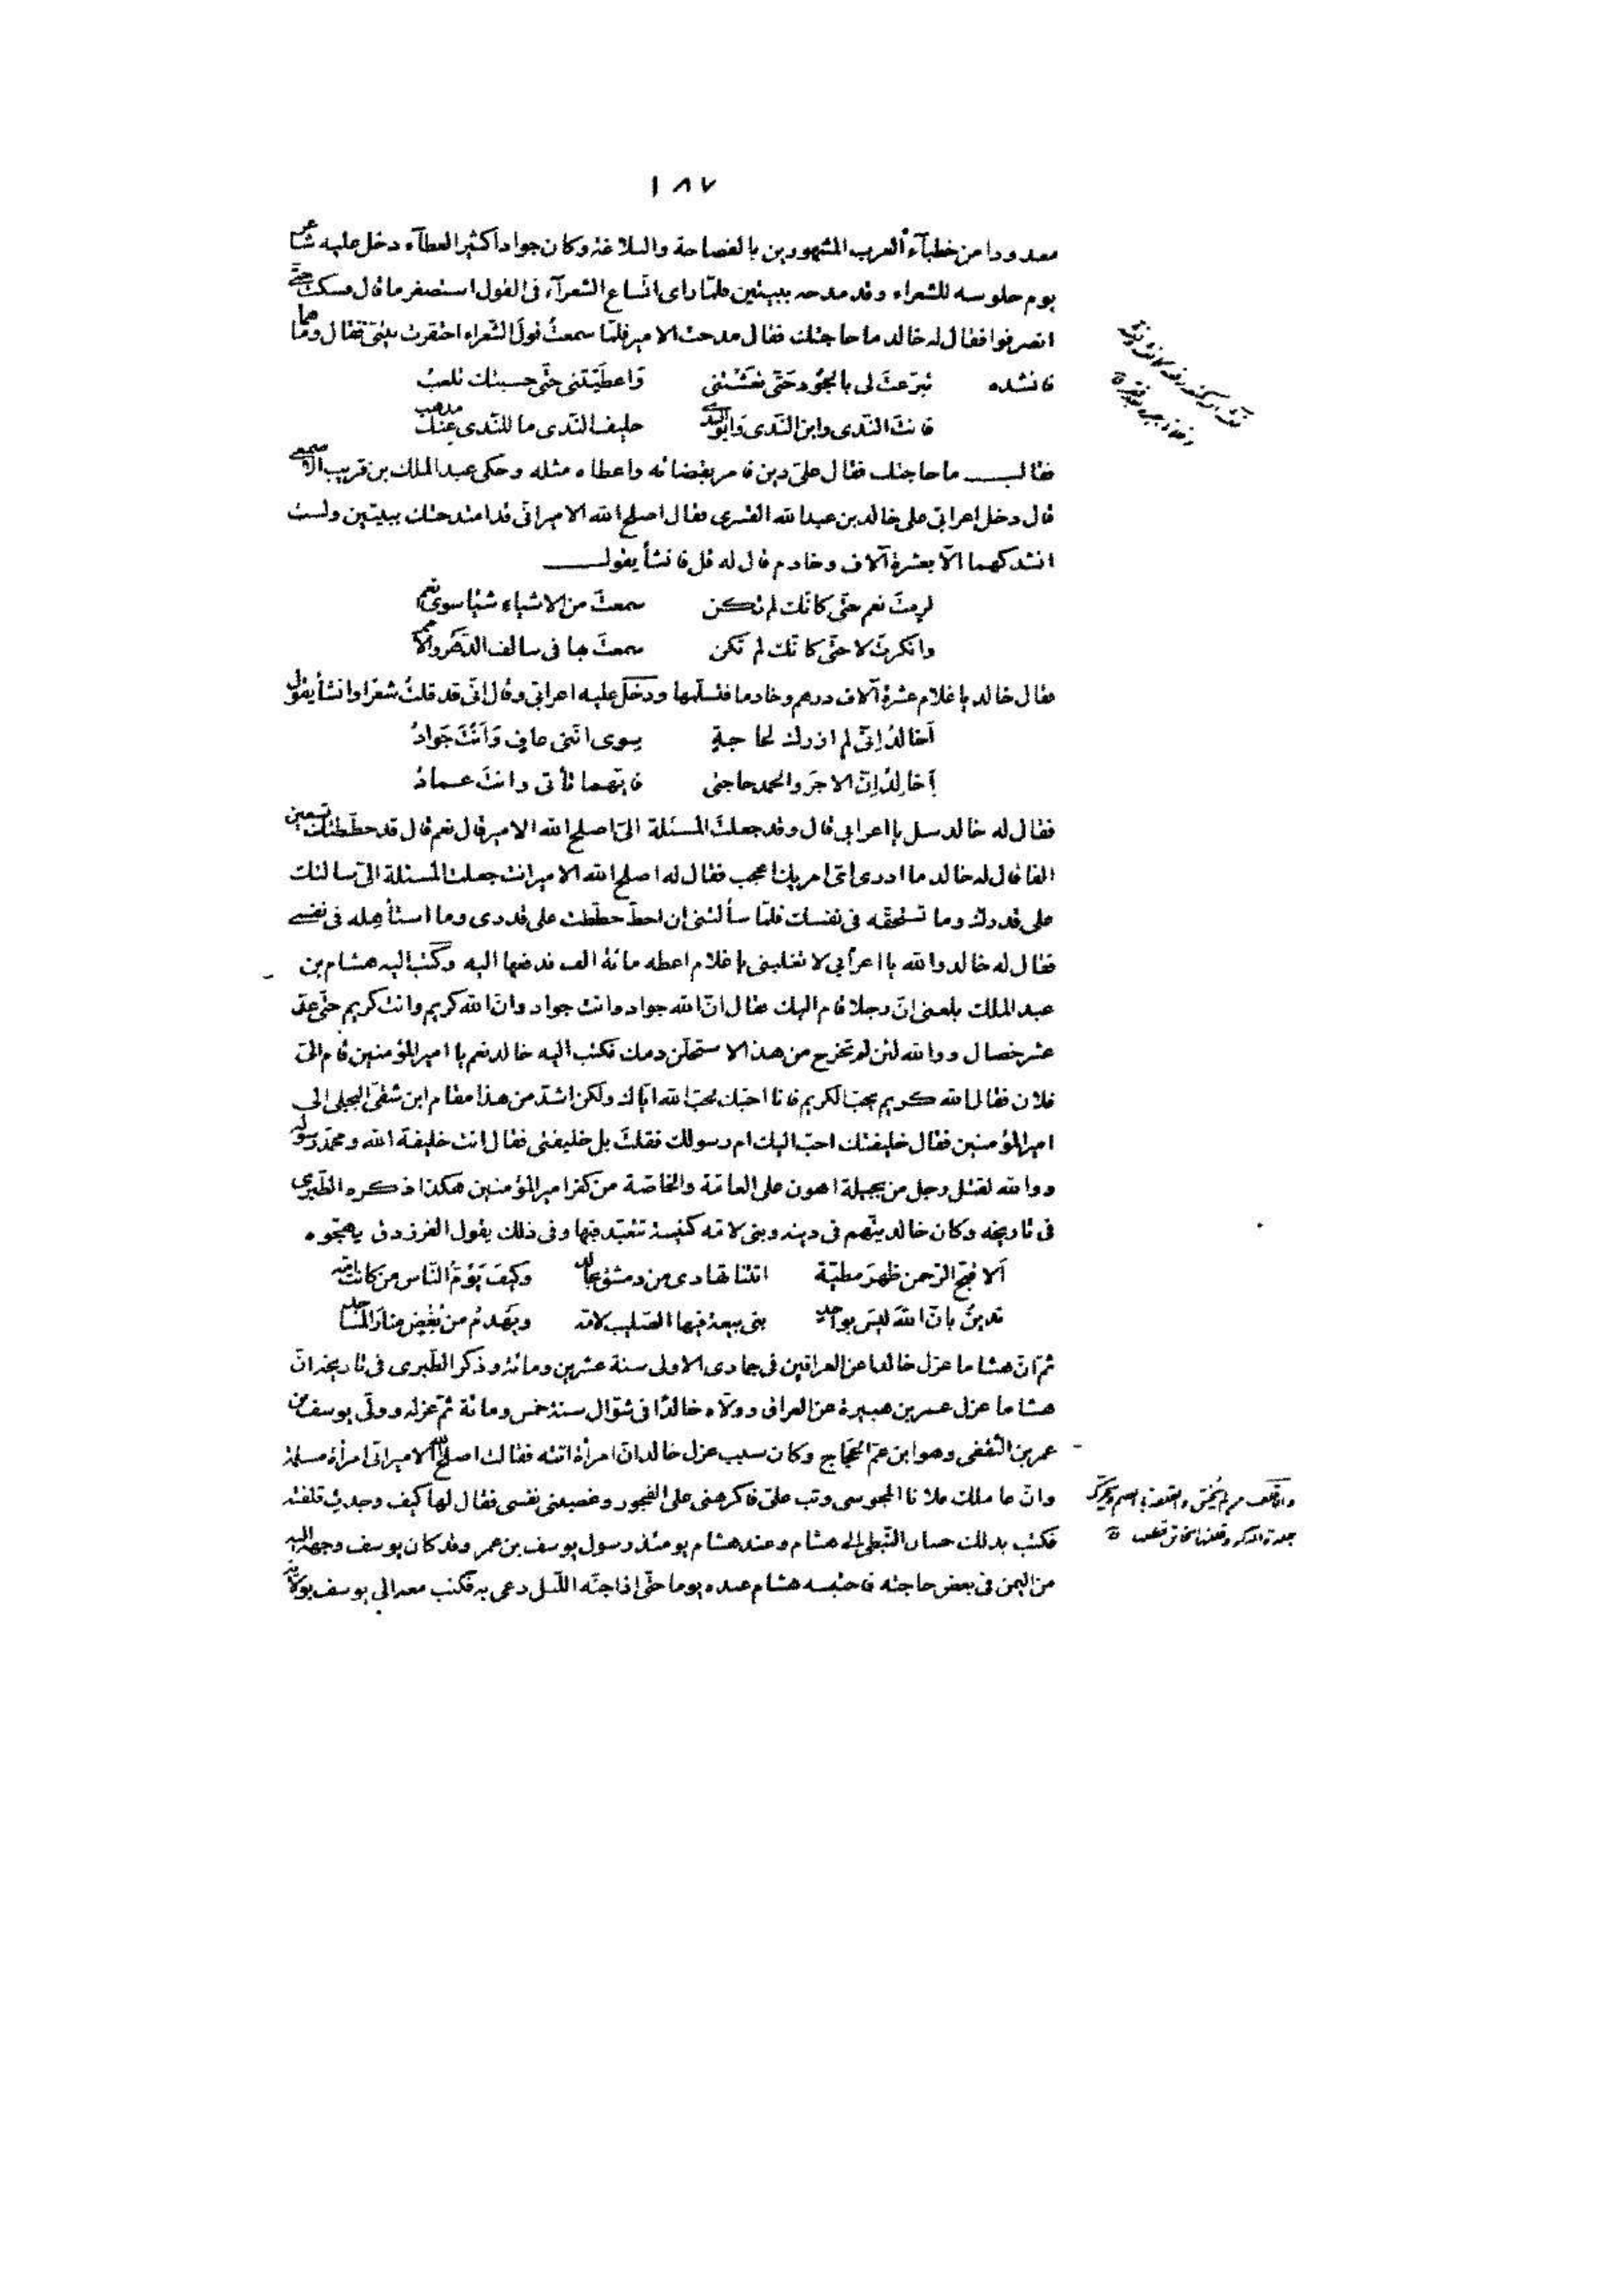 ١٨٧
معدودا من خطبآء العرب المشهورين بالفصاحة والبلاغة وكان جوادا كثير العطآء دخل عليه شاعر
يوم جلوسه للشعراء وقد مدحه ببيتين فلمّا راى اتّساع الشعرآء فى القول استصغر ما قال فسكت حتّى
انصرفوا فقال له خالد ما حاجتك فقال مدحت الامير فلمّا سمعتُ قول الشّعراء احتقرت بيتىّ فقال وما هما
فانشده تبرّعتَ لى بالجُود حَتّى نعَشْتَنى وَاعطَيْتَنى حتّى حسبتك تلعبُ
فانتَ النّدى وابن النّدى وَابو النّدى حليف النّدى ما للنّدى عنك مذهب
فقال ما حاجتك فقال علىّ دين فامر بقضائه واعطاه مثله وحكى عبد الملك بن قريب الاصمعى
قال دخل اعرابىّ على خالد بن عبد الله القسرى فقال اصلح الله الامير انّى قد امتدحتك ببيتين ولست
انشدكهما الّا بعشرة آلاف وخادم قال له قل فانشأ يقول
لزمتَ نعم حتّى كانّك لم تكن سمعتَ من الاشياء شيئا سوى نعم
وانكرتَ لا حتّى كانّك لم تكن سمعتَ بها فى سالف الدّهر والامم
فقال خالد يا غلام عشرة آلاف درهم وخادما فتسلّمها ودخل عليه اعرابىّ وقال انّى قد قلتُ شعرًا وانشأ يقول
أخالدُ اِنّى لم ازرك لحاجةٍ سِوى انّنى عافٍ وَاَنْتَ جَوادُ
أخالِدُ اِنّ الاجرَ والحمد حاجتى فايّهما تأتى وانتَ عمادُ
فقال له خالد سل يا اعرابى قال وقد جعلتَ المسئلة الىّ اصلح الله الامير قال نعم قال قد حططتك تسعين
الفا قال له خالد ما ادرى اىّ امريك اعجب فقال له اصلح الله الامير انت جعلت المسئلة الىّ سالتك
على قدرك وما تستحقّه فى نفسك فلمّا سألتنى ان احطّ حططت على قدرى وما استأهله فى نفسى
فقال له خالد والله يا اعرابى لا تغلبنى يا غلام اعطه مائة الف فدفعها اليه وكتب اليه هشام بن
عبد الملك بلغنى انّ رجلا قام اليك فقال انّ الله جواد وانت جواد وانّ الله كريم وانت كريم حتّى عدّ
عشر خصال ووالله لئن لم تخرج من هذا لاستحلّن دمك فكتب اليه خالد نعم يا امير المؤمنين قام الىّ
فلان فقال الله كريم يحبّ الكريم فانا احبّك بحبّ الله ايّاك ولكن اشدّ من هذا مقام ابن شقىّ البجلى الى
امير المؤمنين فقال خليفتك احبّ اليك ام رسولك فقلتَ بل خليفتى فقال انت خليفة الله ومحمّد رسوله
ووالله لقتل رجل من بجيلة اهون على العامّة والخاصّة من كفر امير المؤمنين هكذا ذكره الطّبرى
فى تاريخه وكان خالد يتّهم فى دينه وبنى لامّه كنيسة تتعبّد فيها وفى ذلك يقول الفرزدق يهجوه
اَلا قبّح الرّحمن ظهرَ مطيّة اتتنا تهادى من دمشق بخالد وكيفَ يَؤُمّ النّاس من كانت امّه
تدينُ بانّ اللهَ ليسَ بواحدِ بنى بيعة فيها الصّليب لامّه ويهدمُ من بُغْضٍ منارَ المساجد
ثمّ انّ هشاما عزل خالدا عن العراقين فى جمادى الاولى سنة عشرين ومائة وذكر الطّبرى فى تاريخه انّ
هشاما عزل عمر بن هبيرة عن العراق وولّاه خالدًا فى شوّال سنة خمس ومائة ثمّ عزله وولّى يوسف بن
عمر بن الثّقفى وهو ابن عمّ الحجّاج وكان سبب عزل خالد انّ امرأة اتته فقالت اصلح الله الامير انّى امرأة مسلمة
وانّ عاملك فلانا المجوسى وثب علىّ فاكرهنى على الفجور وغصبنى نفسى فقال لها كيف وجدتِ قلفته
فكتب بذلك حسان النّبطى الى هشام وعند هشام يومئذ رسول يوسف بن عمر وقد كان يوسف وجهه اليه
من اليمن فى بعض حاجته فاحتبسه هشام عنده يوما حتّى اذا جنّه اللّيل دعى به فكتب معه الى يوسف بولاية